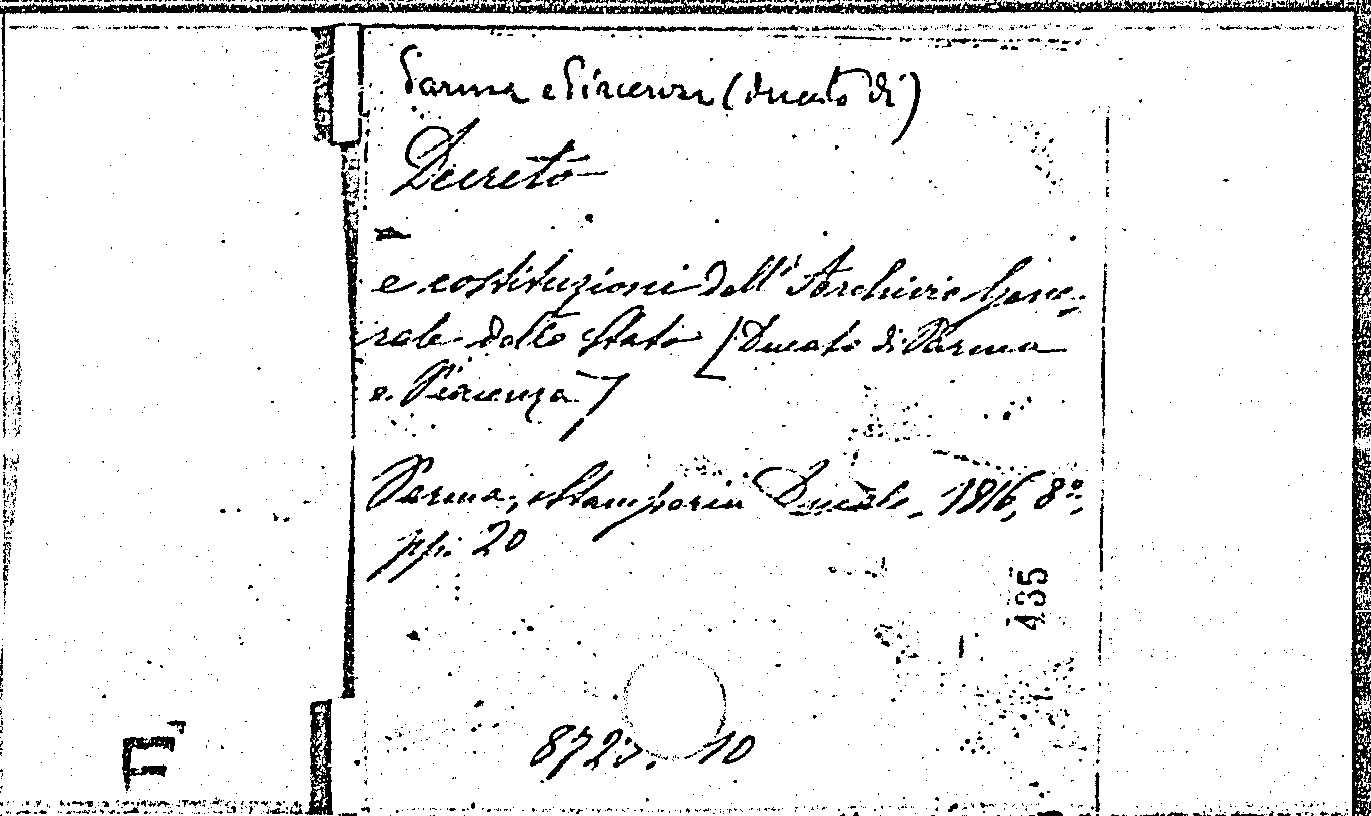 Parma e Piacenza (Ducato di)
Decreto
e costituzioni dell'Archivio Gene-
rale dello Stato [Ducato di Parma
e Piacenza]
Parma, Stamperia Ducale, 1816, 8º,
pp. 20
435
10
F